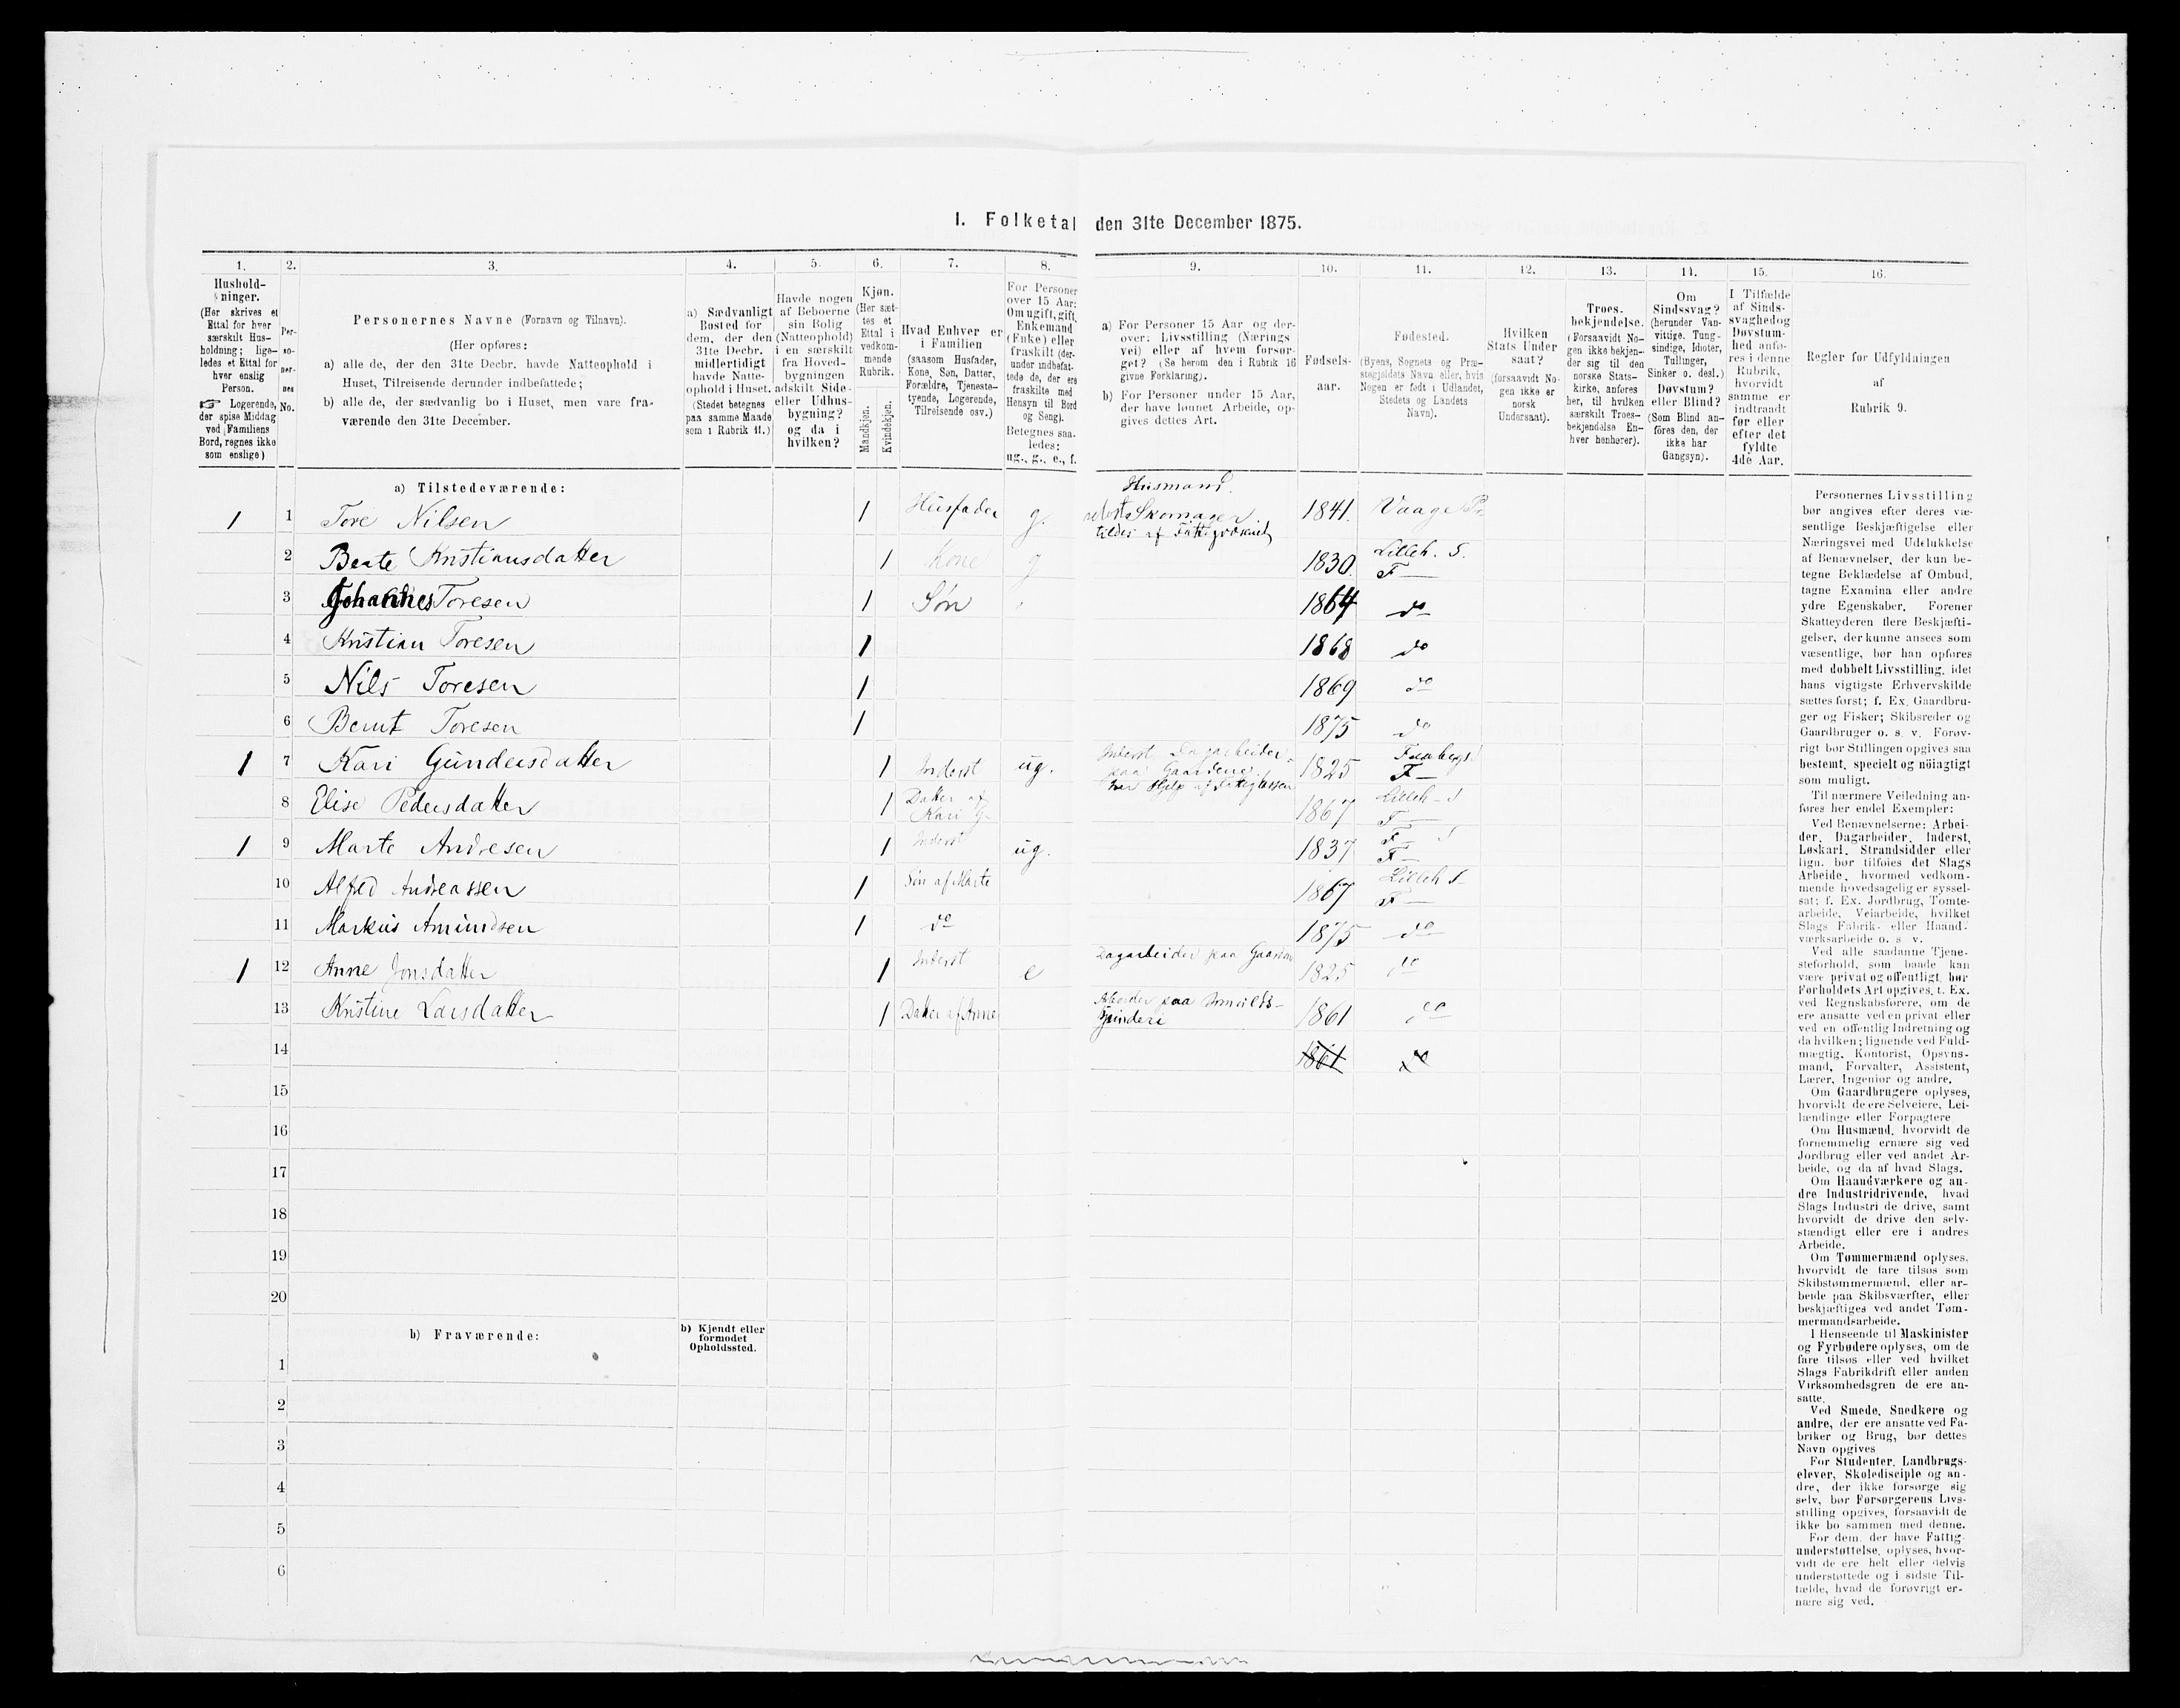 I. Folketal den 31te December 1875.
1.
Hushold-
ninger.
(Her skrives et
Ettal for hver
særskilt Hus-
holdning; lige-
ledes et Ettal for
hver enslig
Person.
☞ Logerende,
der spise Middag
ved Familiens
Bord, regnes ikke
som enslige)
2.
Per-
so-
ner-
nes
No.
3.
Personernes Navne (Fornavn og Tilnavn).
(Her opføres:
a) alle de, der den 31te Decbr. havde Natteophold i
Huset, Tilreisende derunder indbefattede;
b) alle de, der sædvanlig bo i Huset, men vare fra-
værende den 31te December.
4.
a) Sædvanligt
Bosted for
dem, der den
31te Decbr.
midlertidigt
havde Natte-
ophold i Huset.
(Stedet betegnes
paa samme Maade
som i Rubrik 11.)
5.
Havde nogen
af Beboerne
sin Bolig
(Natteophold)
i en særskilt
fra Hoved-
bygningen
adskilt Side-
eller Udhus-
bygning?
og da i
hvilken?
6.
Kjøn.
(Her sæt-
tes et
Ettal i
vedkom-
mende
Rubrik.
Mandkjøn.
Kvindekjøn.
7.
Hvad Enhver er
i Familien
(saasom Husfader,
Kone, Søn, Datter,
Forældre, Tjeneste-
tyende, Logerende,
Tilreisende osv.)
8.
For Personer
over 15 Aar:
Om ugift, gift,
Enkemand
(Enke) eller
fraskilt (der-
under indbefat-
tede de, der ere
fraskilte med
Hensyn til Bord
og Seng).
Betegnes saa-
ledes:
ug., g., e., f.
9.
a) For Personer 15 Aar og der-
over: Livsstilling (Nærings
vei) eller af hvem forsør-
get? (Se herom den i Rubrik 16
givne Forklaring).
b) For Personer under 15 Aar,
der have lønnet Arbeide, op-
gives dettes Art.
10.
Fødsels-
aar.
11.
Fødested.
(Byens, Sognets og Præ-
stegjeldets Navn eller, hvis
Nogen er født i Udlandet,
Stedets og Landets
Navn).
12.
Hvilken
Stats Under
saat?
(forsaavidt No-
gen ikke er
norsk
Undersaat).
13.
Troes-
bekjendelse.
(Forsaavidt No-
gen ikke bekjen-
der sig til den
norske Stats-
kirke, anføres
her, til hvilken
særskilt Troes-
bekjendelse En-
hver henhører).
14.
Om
Sindssvag?
(herunder Van-
vittige, Tung-
sindige, Idioter,
Tullinger,
Sinker o. desl.)
Døvstum?
eller Blind?
(Som Blind an-
føres den, der
ikke har
Gangsyn).
15.
I Tilfælde
af Sinds-
svaghed og
Døvstum-
hed anfø-
res i denne
Rubrik,
hvorvidt
samme er
indtraadt
før eller
efter det
fyldte
4de Aar.
16.
Regler for Udfyldningen
af
Rubrik 9.
a) Tilstedeværende:
Husmand.
1 1 Tore Nilsen 1 Husfader g. Skomager 1841. Vaage
af
2 Beate Kristiansdatter 1 Kone g 1830. Lilleh. S.
F—
3 Johannes Toresen 1 Søn 1864 do
4 Kristian Toresen 1 1868 do
5 Nils Toresen 1 1869 do
6 Bernt Toresen 1 1875 do
1 7 Kari Gundersdatter 1 Inderst ug. Inderst Dagarbeider
paa Gaardene 1825 F—
har Hjelp af
8 Elise Pedersdatter 1 Datter af
Kari G. 1867 Lilleh— S
F—
1 9 Marte Andresen 1 Inderst ug. 1837 F— S
F—
10 Alfred Andreassen 1 Søn af Marte 1867 Lilleh S—
F—
11 Markus Amundsen 1 do 1875 do
1 12 Anne Jonsdatter 1 Inderst e Dagarbeider paa 1825 do
13 Kristine Larsdatter 1 Datter af Anne Arbeider paa
Spinderi 1861 do
14 1861 do
15
16
17
18
19
20
b) Fraværende:
b) Kjendt eller
formodet
Opholdssted.
1
2
3
4
5
6
Personernes Livsstilling
bør angives efter deres væ-
sentlige Beskjæftigelse eller
Næringsvei med Udelukkelse
af Benævnelser, der kun be-
tegne Beklædelse af Ombud,
tagne Examina eller andre
ydre Egenskaber. Forener
Skatteyderen flere Beskjæfti-
gelser, der kunne ansees som
væsentlige, bør han opføres
med dobbelt Livsstilling, idet
hans vigtigste Erhvervskilde
sættes først; f. Ex. Gaardbru-
ger og Fisker; Skibsreder og
Gaardbruger o. s. v. Forøv-
rigt bør Stillingen opgives saa
bestemt, specielt og nøiagtigt
som muligt.
Til nærmere Veiledning an-
føres her endel Exempler:
Ved Benævnelserne: Arbei-
der, Dagarbeider, Inderst,
Løskarl, Strandsidder eller
lign. bør tilføies det Slags
Arbeide, hvormed vedkom-
mende hovedsagelig er syssel-
sat; f. Ex. Jordbrug, Tomte-
arbeide, Veiarbeide, hvilket
Slags Fabrik- eller Haand-
værksarbeide o. s. v.
Ved alle saadanne Tjene-
steforhold, som baade kan
være privat og offentligt, bør
Forholdets Art opgives, t. Ex.
ved Regnskabsførere, om de
ere ansatte ved en privat eller
ved en offentlig Indretning og
da hvilken; lignende ved Fuld-
mægtig, Kontorist, Opsyns-
mand, Forvalter, Assistent,
Lærer, Ingeniør og andre.
Om Gaardbrugere oplyses,
hvorvidt de ere Selveiere, Lei-
lændinge eller Forpagtere
Om Husmænd, hvorvidt de
fornemmelig ernære sig ved
Jordbrug eller ved andet Ar-
beide, og da af hvad Slags.
Om Haandværkere og an-
dre Industridrivende, hvad
Slags Industri de drive, samt
hvorvidt de drive den selv-
stændigt eller ere i andres
Arbeide.
Om Tømmermænd oplyses,
hvorvidt de fare tilsøs som
Skibstømmermænd, eller ar-
beide paa Skibsværfter, eller
beskjæftiges ved andet Tøm-
mermandsarbeide.
I Henseende til Maskinister
og Fyrbødere oplyses, om de
fare tilsøs eller ved hvilket
Slags Fabrikdrift eller anden
Virksomhedsgren de ere an-
satte.
Ved Smede, Snedkere og
andre, der ere ansatte ved Fa-
briker og Brug, bør dettes
Navn opgives
For Studenter, Landbrugs-
elever, Skoledisciple og an-
dre, der ikke forsørge sig
selv, bør Forsørgerens Livs-
stilling opgives, forsaavidt de
ikke bo sammen med denne.
For dem, der have Fattig-
understøttelse, oplyses, hvor-
vidt de ere helt eller delvis
understøttede og i sidste Til-
fælde, hvad de forøvrigt er-
nære sig ved.